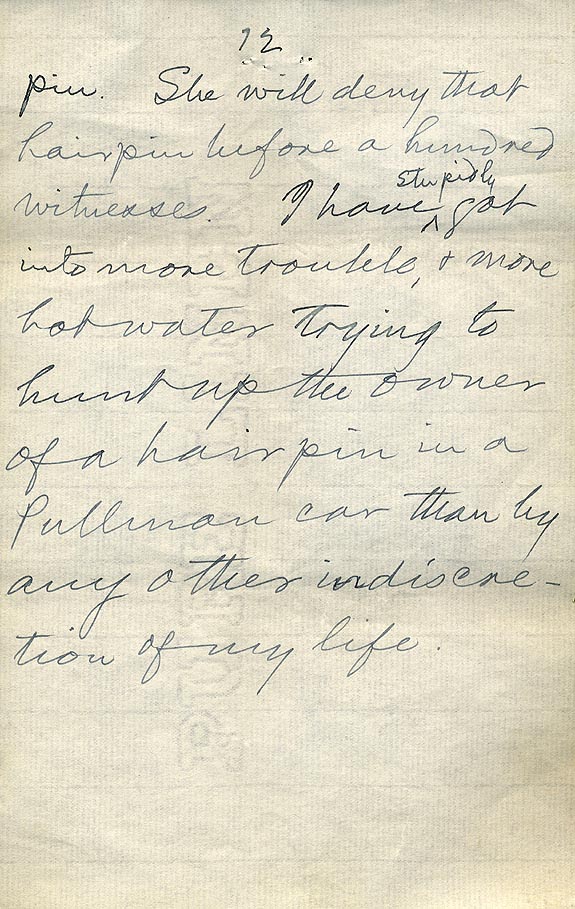 12
pin. She will deny that
hairpin before a hundred
witnesses. I have stupidly got
into more trouble, & more
hot water trying to
hunt up the owner
of a hairpin in a
Pullman car than by
any other indiscre-
tion of my life.